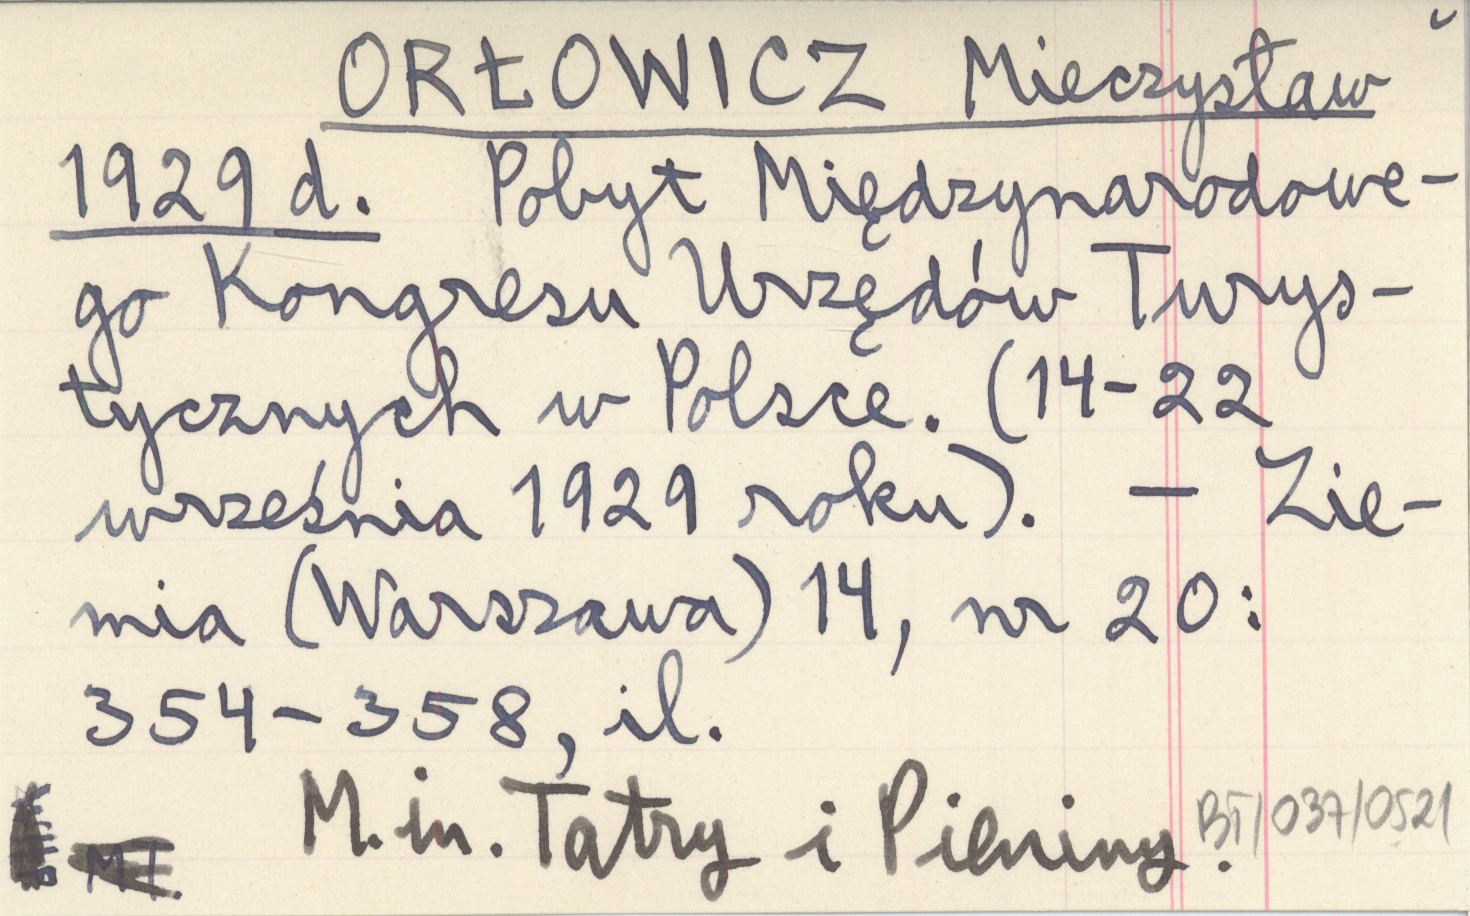 ORŁOWICZ Mieczysław
1929 d. Pobyt Międzynarodowe-
go Kongresu Urzędów Turys-
tycznych w Polsce. (14-22
września 1929 roku). — Zie-
mia (Warszawa) 14, nr 20:
354-358, il.
M.in. Tatry i Pieniny.
BT/037/0521